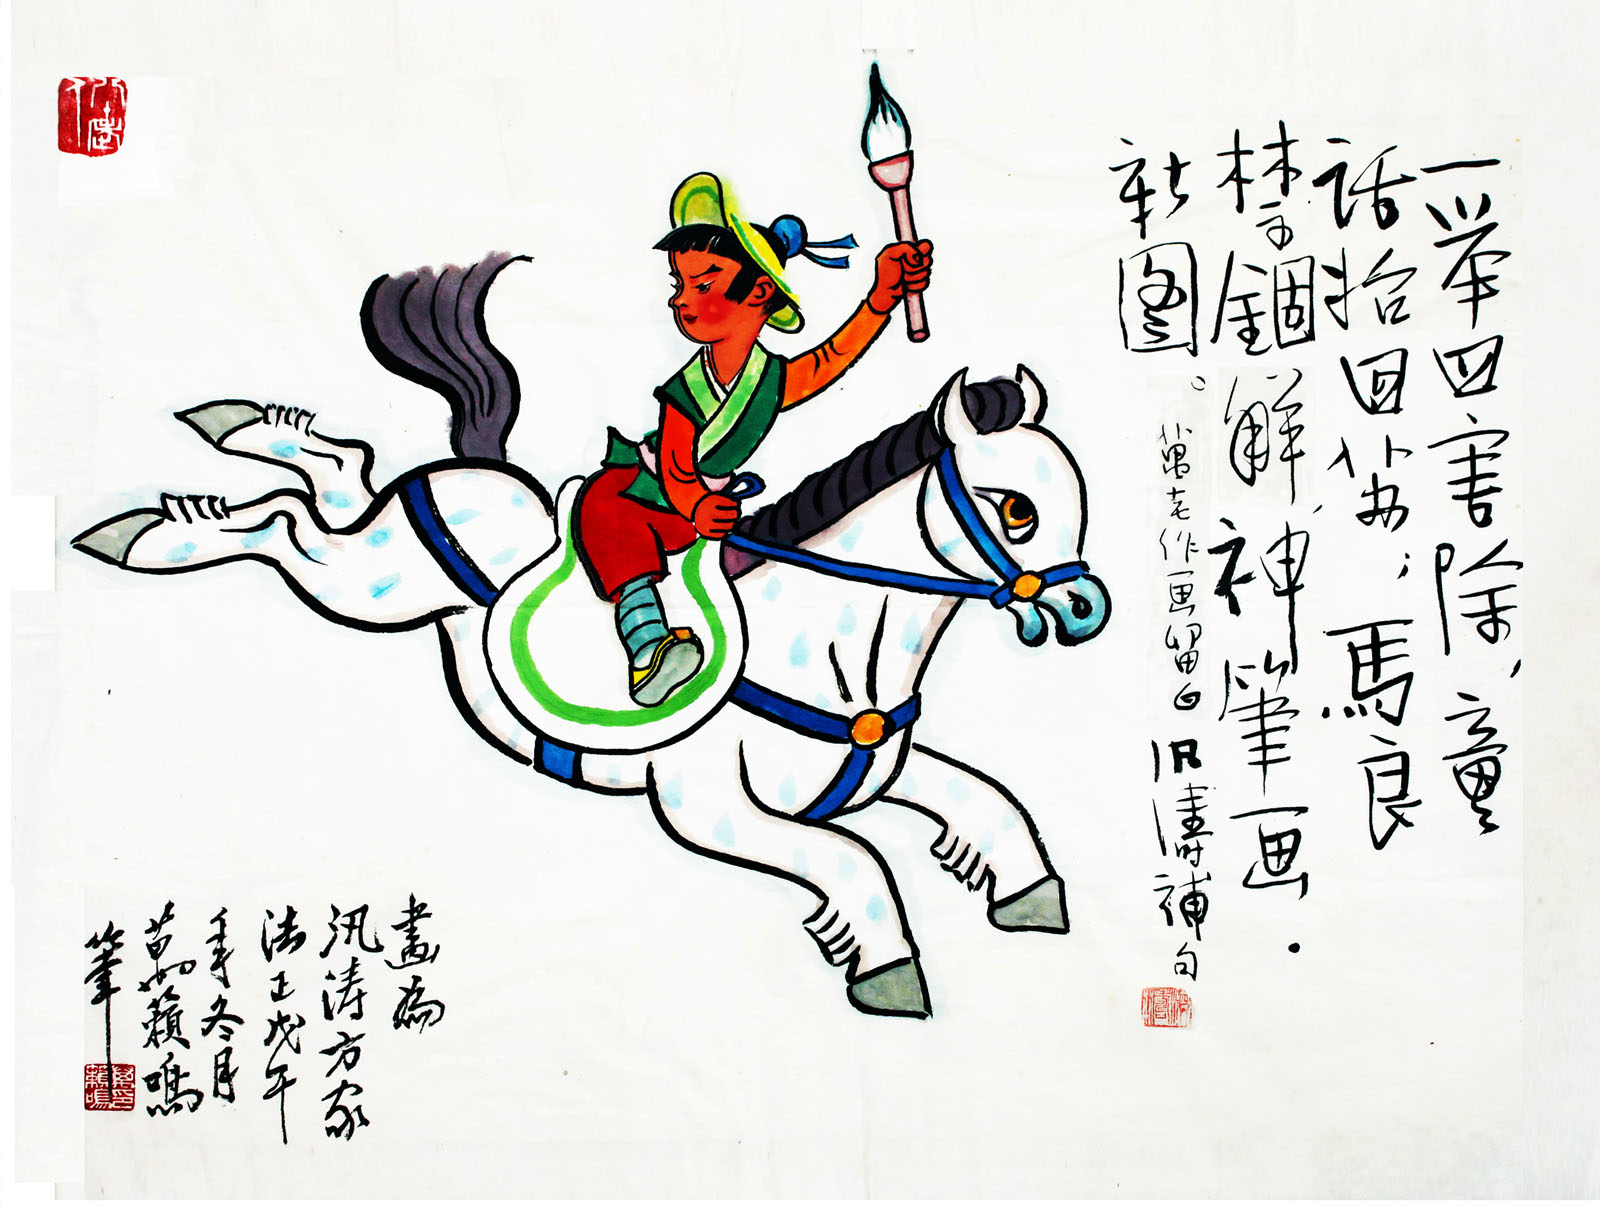 一举四害除，童
话拾回来；馬良
禁錮解，神筆画
新图。
萬老作画留白
汛濤補句
畫為
汛涛方家
法正戊午
年冬月
萬籟鳴
筆